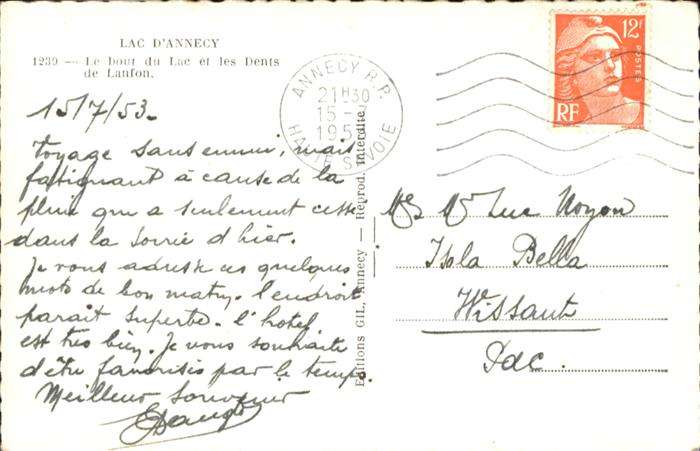 LAC D'ANNECY
1239 — Le bout du Lac et les Dents
de Lanfon.
15/7/53.
Voyage sans ennui, mais
fatigant à cause de la
pluie qui a seulement cessé
dans la soirée d'hier.
Je vous adresse ces quelques
mots de bon matin. l'endroit
parait superbe. l'hotel
est très bien. Je vous souhaite
d'être favorisés par le temps.
Meilleur souvenir
Editions GIL, Annecy — Reprod. Interdite
ANNECY R.P.
21H30
15 - 7
195
HAUTE SAVOIE
12F
POSTES
RF
Mr Luc Noyon
Isola Bella
Wissant
Pdc.